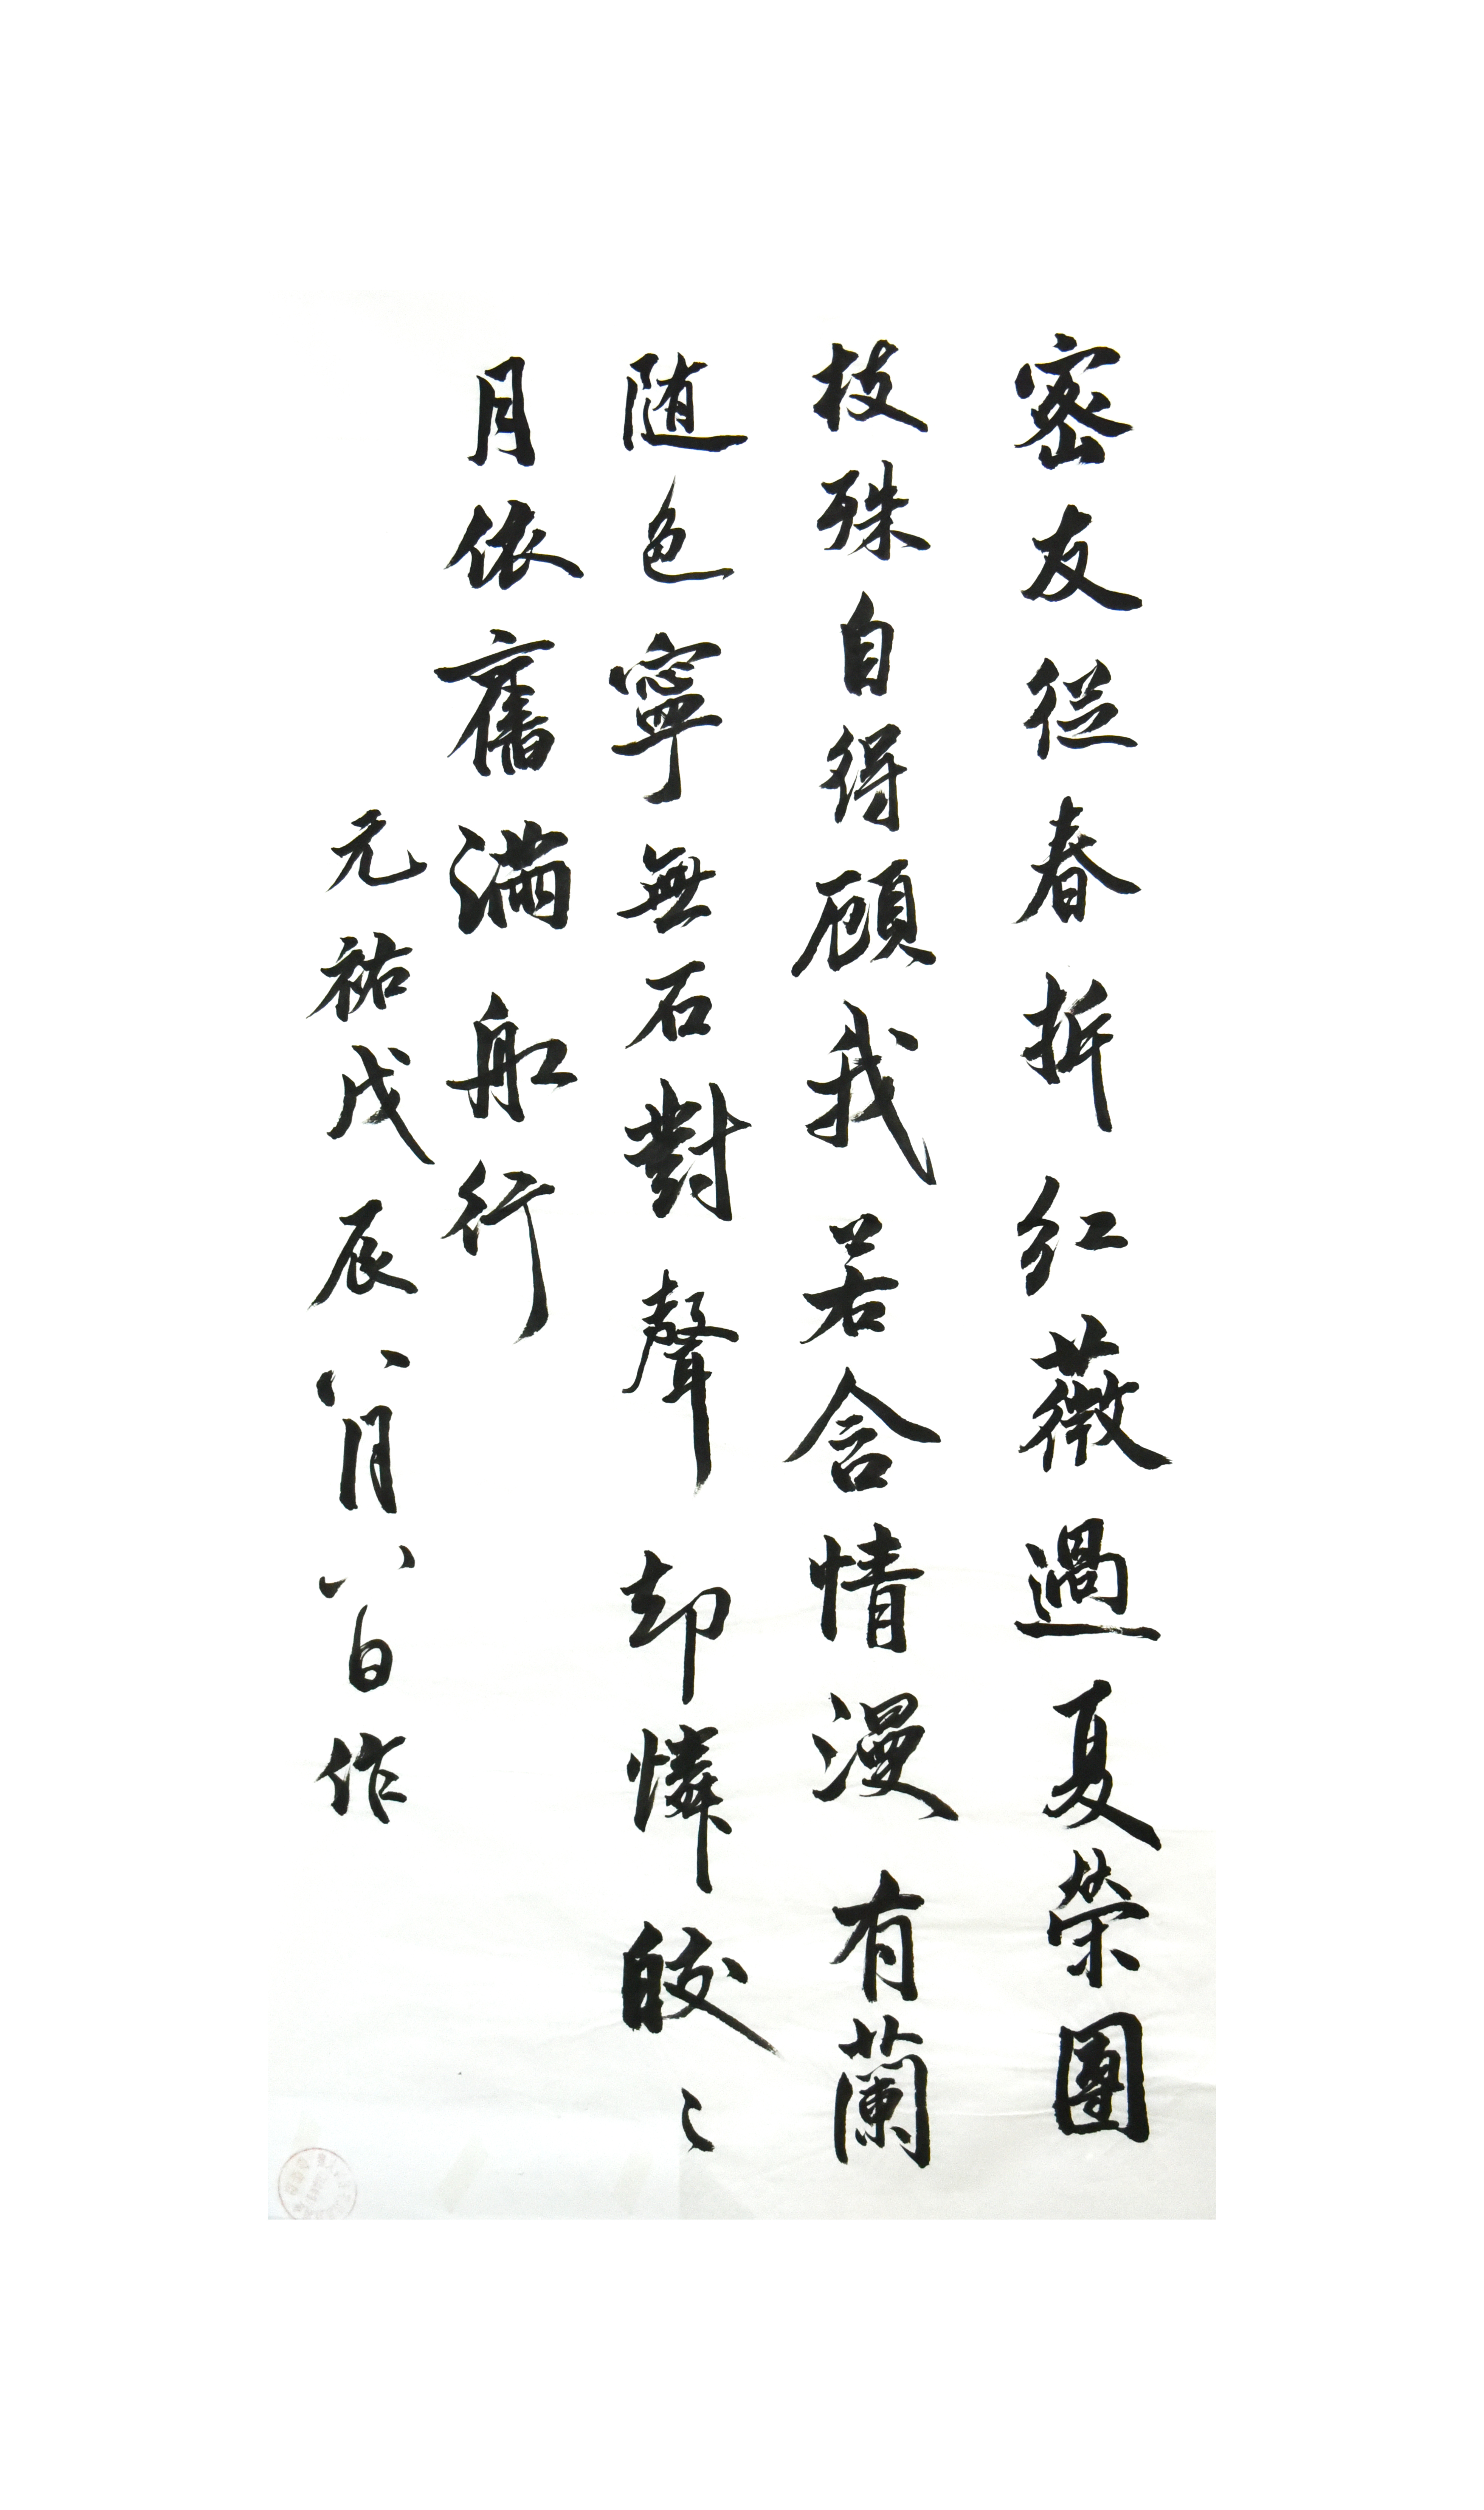 密友従春折紅薇過夏榮團
枝殊自得顧我若含情漫有蘭
随色寧無石對聲却憐皎〻
月依舊滿舡行
元祐戊辰八月八日作